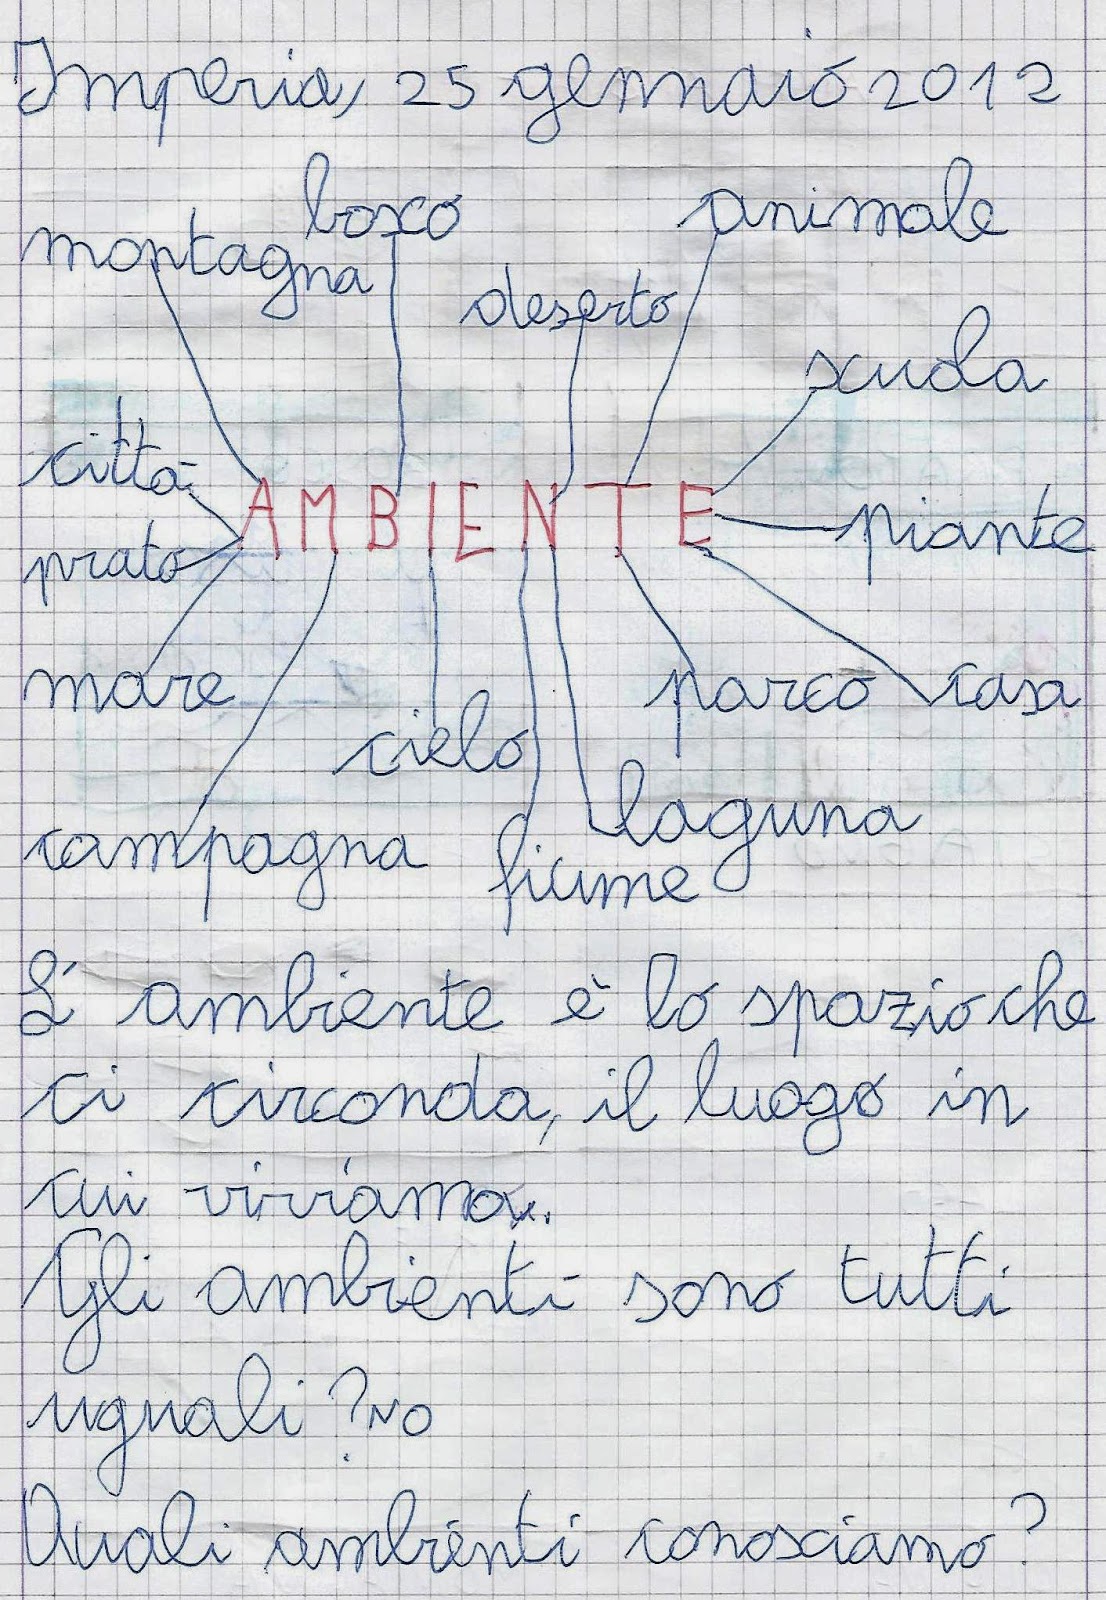 Imperia, 25 gennaio 2012
bosco
animale
montagna
deserto
scuola
città
AMBIENTE
piante
prato
mare
parco
casa
cielo
laguna
campagna
fiume
L'ambiente è lo spazio che
ci circonda, il luogo in
cui viviamo.
Gli ambienti sono tutti
uguali? NO
Quali ambienti conosciamo?